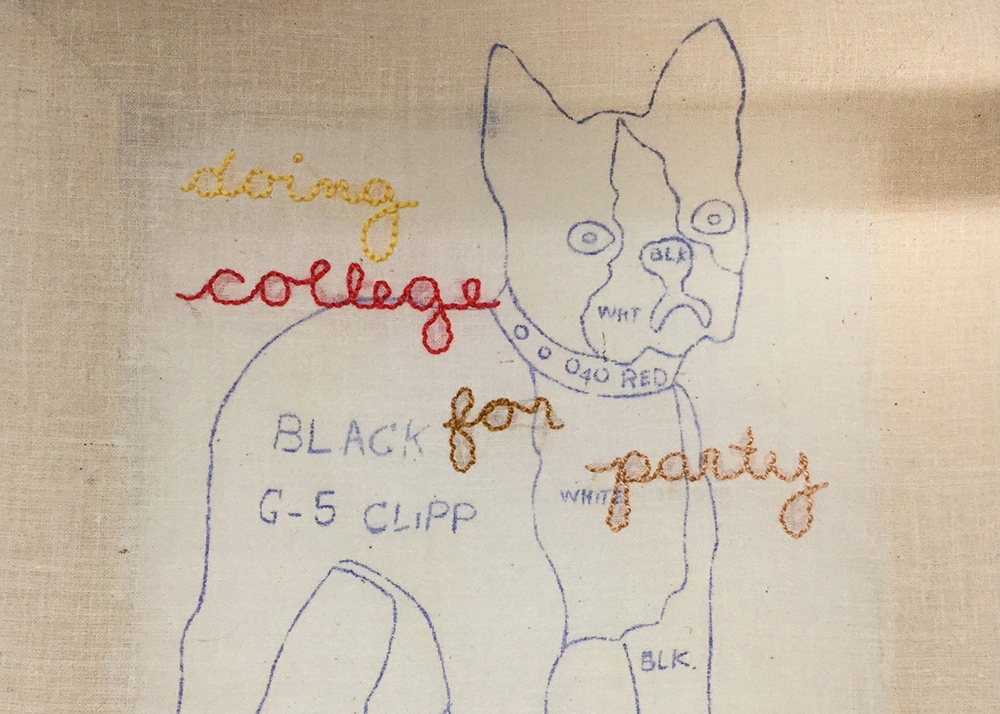 doing
college
for
party
BLK
WHT
40 RED
BLACK
G-5 CLIPP
WHITE
BLK.